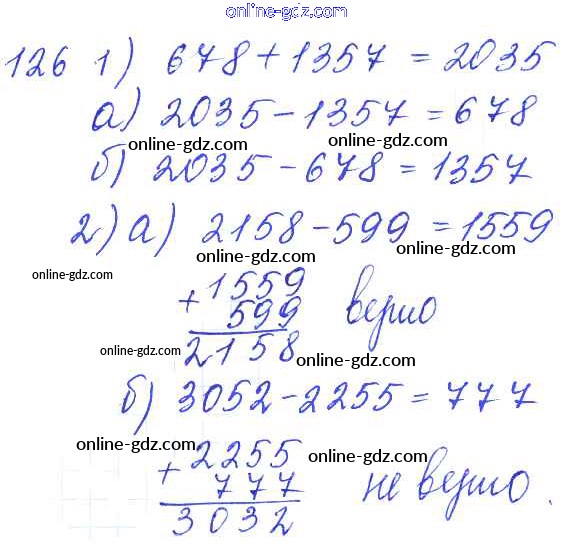 online-gdz.com
126 1) 678 + 1357 = 2035
а) 2035 - 1357 = 678
online-gdz.com online-gdz.com
б) 2035 - 678 = 1357
2) а) 2158 - 599 = 1559
online-gdz.com online-gdz.com
online-gdz.com
+ 1559
599 верно
2158
online-gdz.com online-gdz.com
б) 3052 - 2255 = 777
online-gdz.com online-gdz.com
+ 2255
777 не верно.
3032